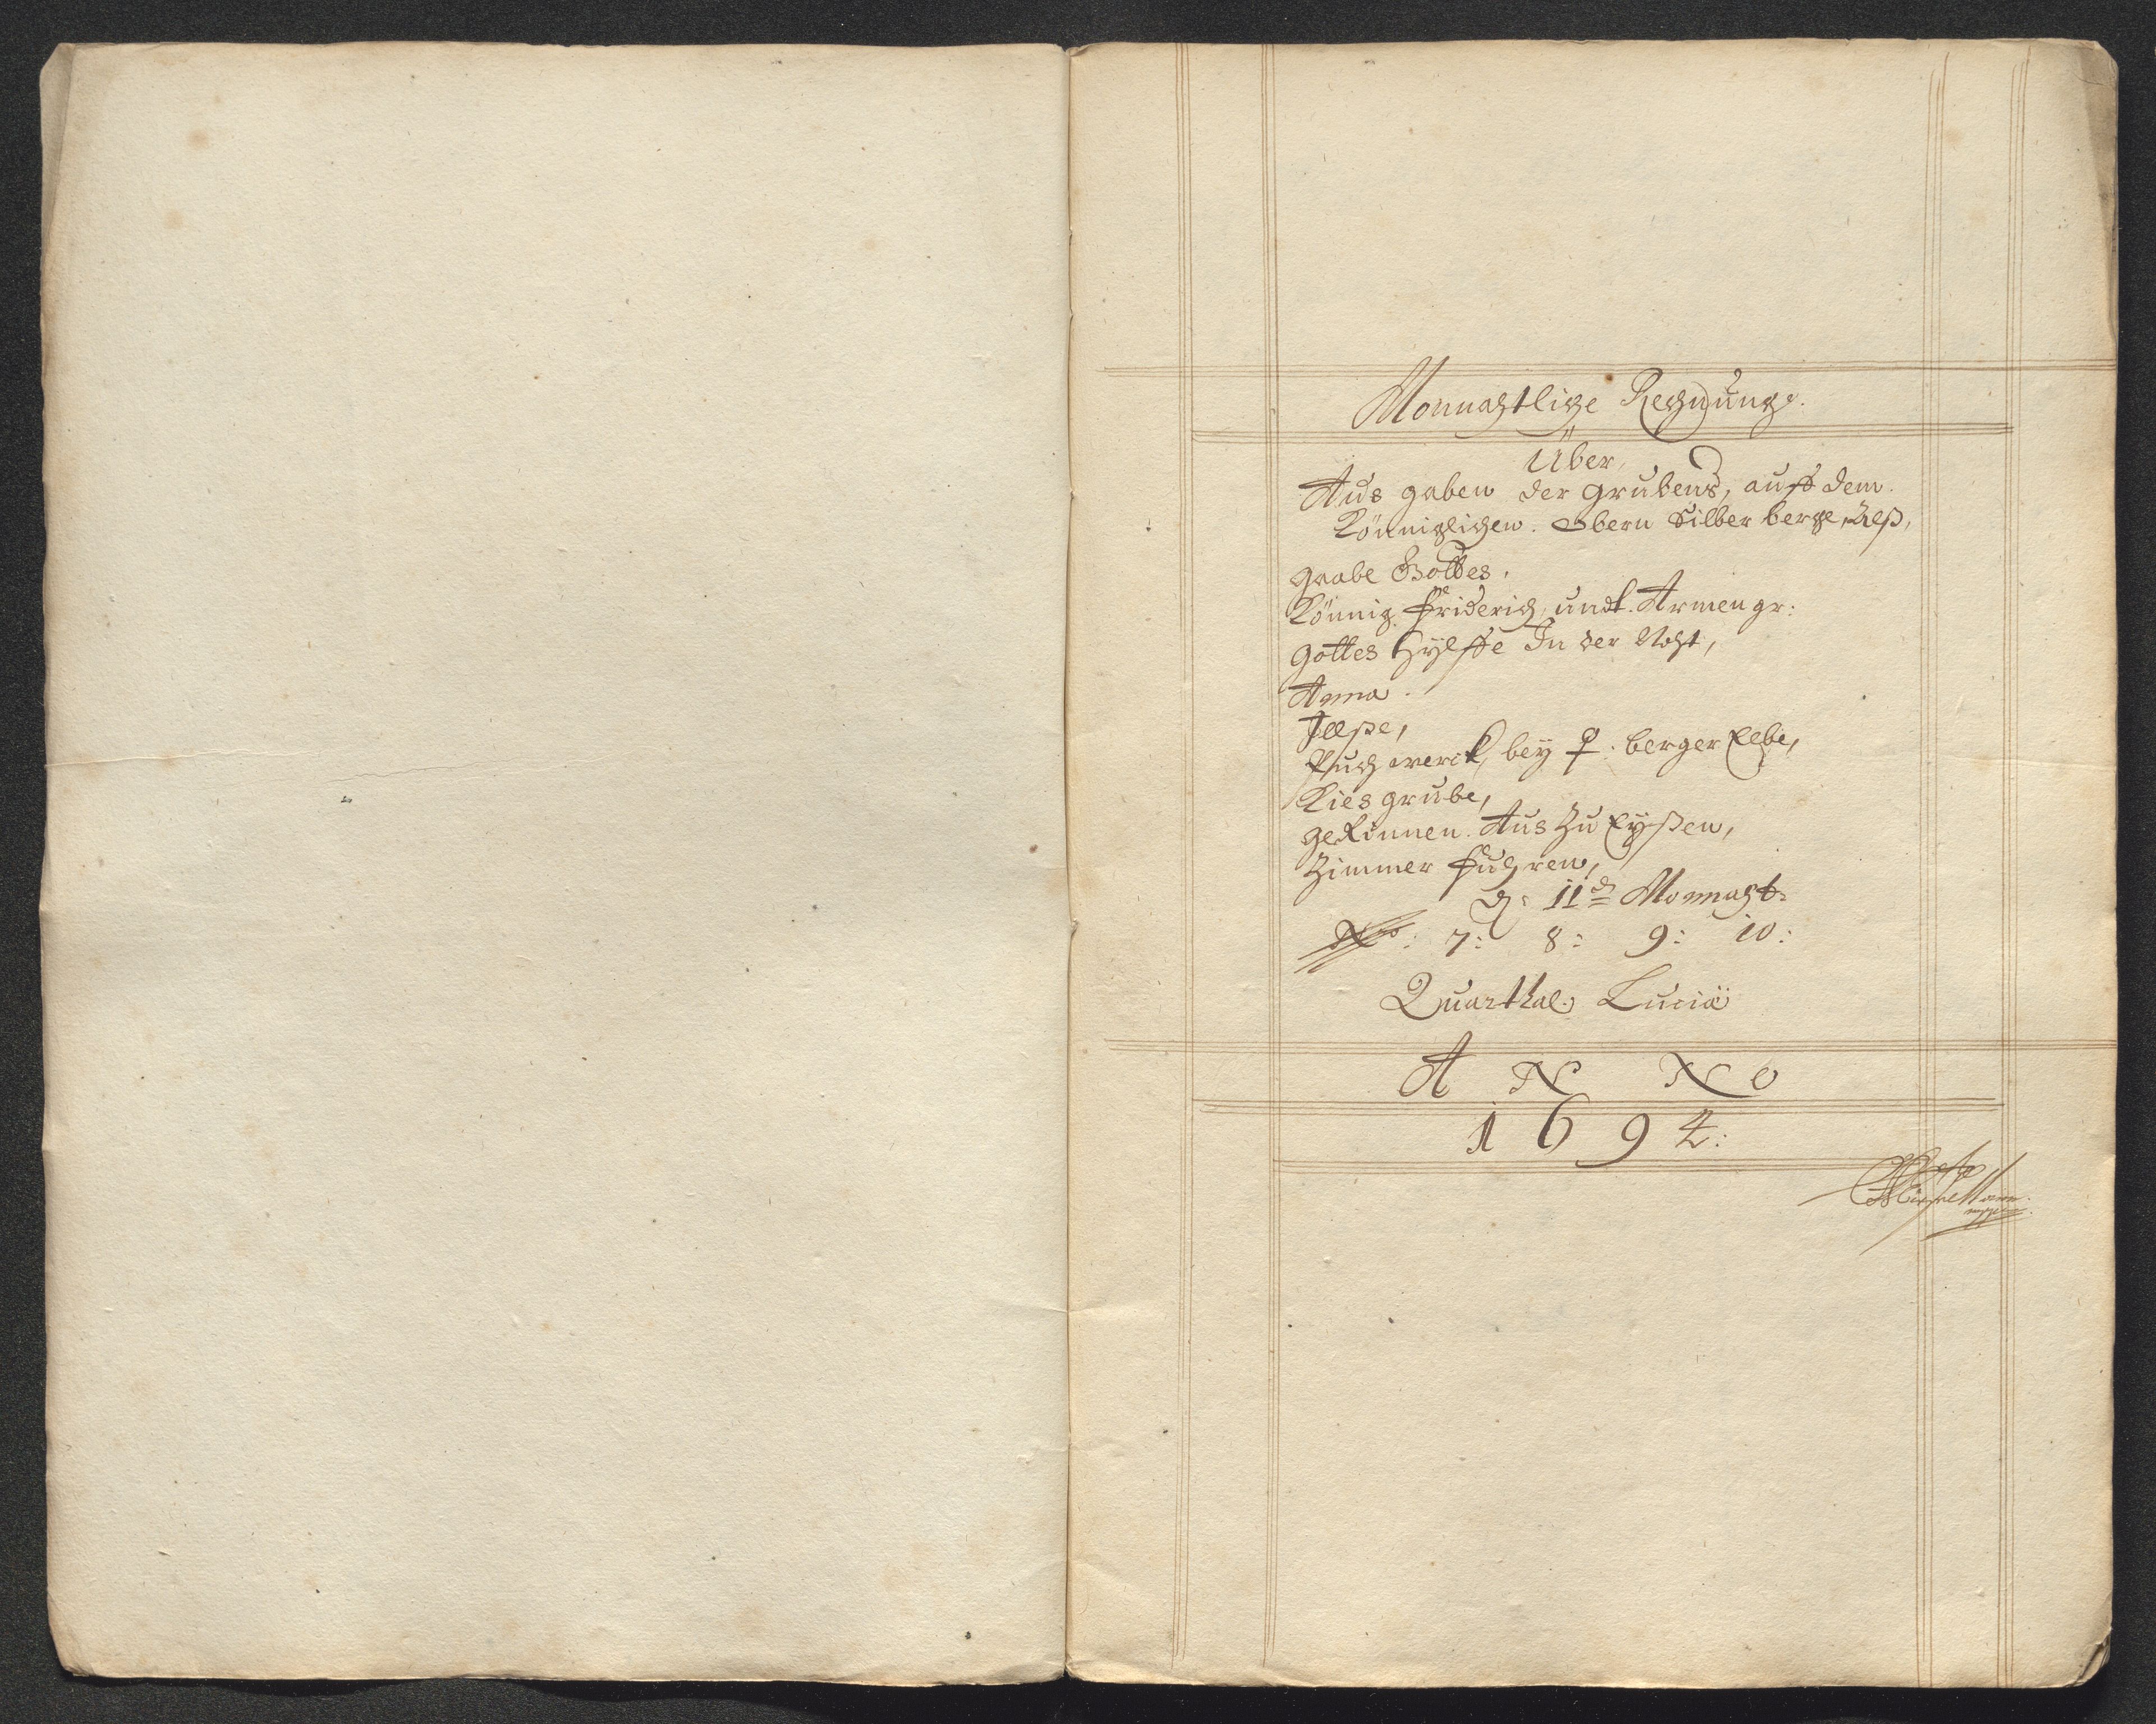 Monnahtliche Rechnunge.
Über,
Aus gaben der grubens, auff dem
Könniglichen. Obern Silber berge, Alß,
gnabe Gottes,
Könnig. Friderich, undt. Armen gr:
gottes Hÿlffe In der Noht,
Anna.
Ilße,
Puch werck, bey ♀. berger Elbe,
Kies grube,
geRinnen. Aus Zu Eyßen,
Zimmer Fuhren,
11 Monnaht:
No: 7: 8: 9: 10:
Quarthal. Luciä
A N N o
1 6 9 4: